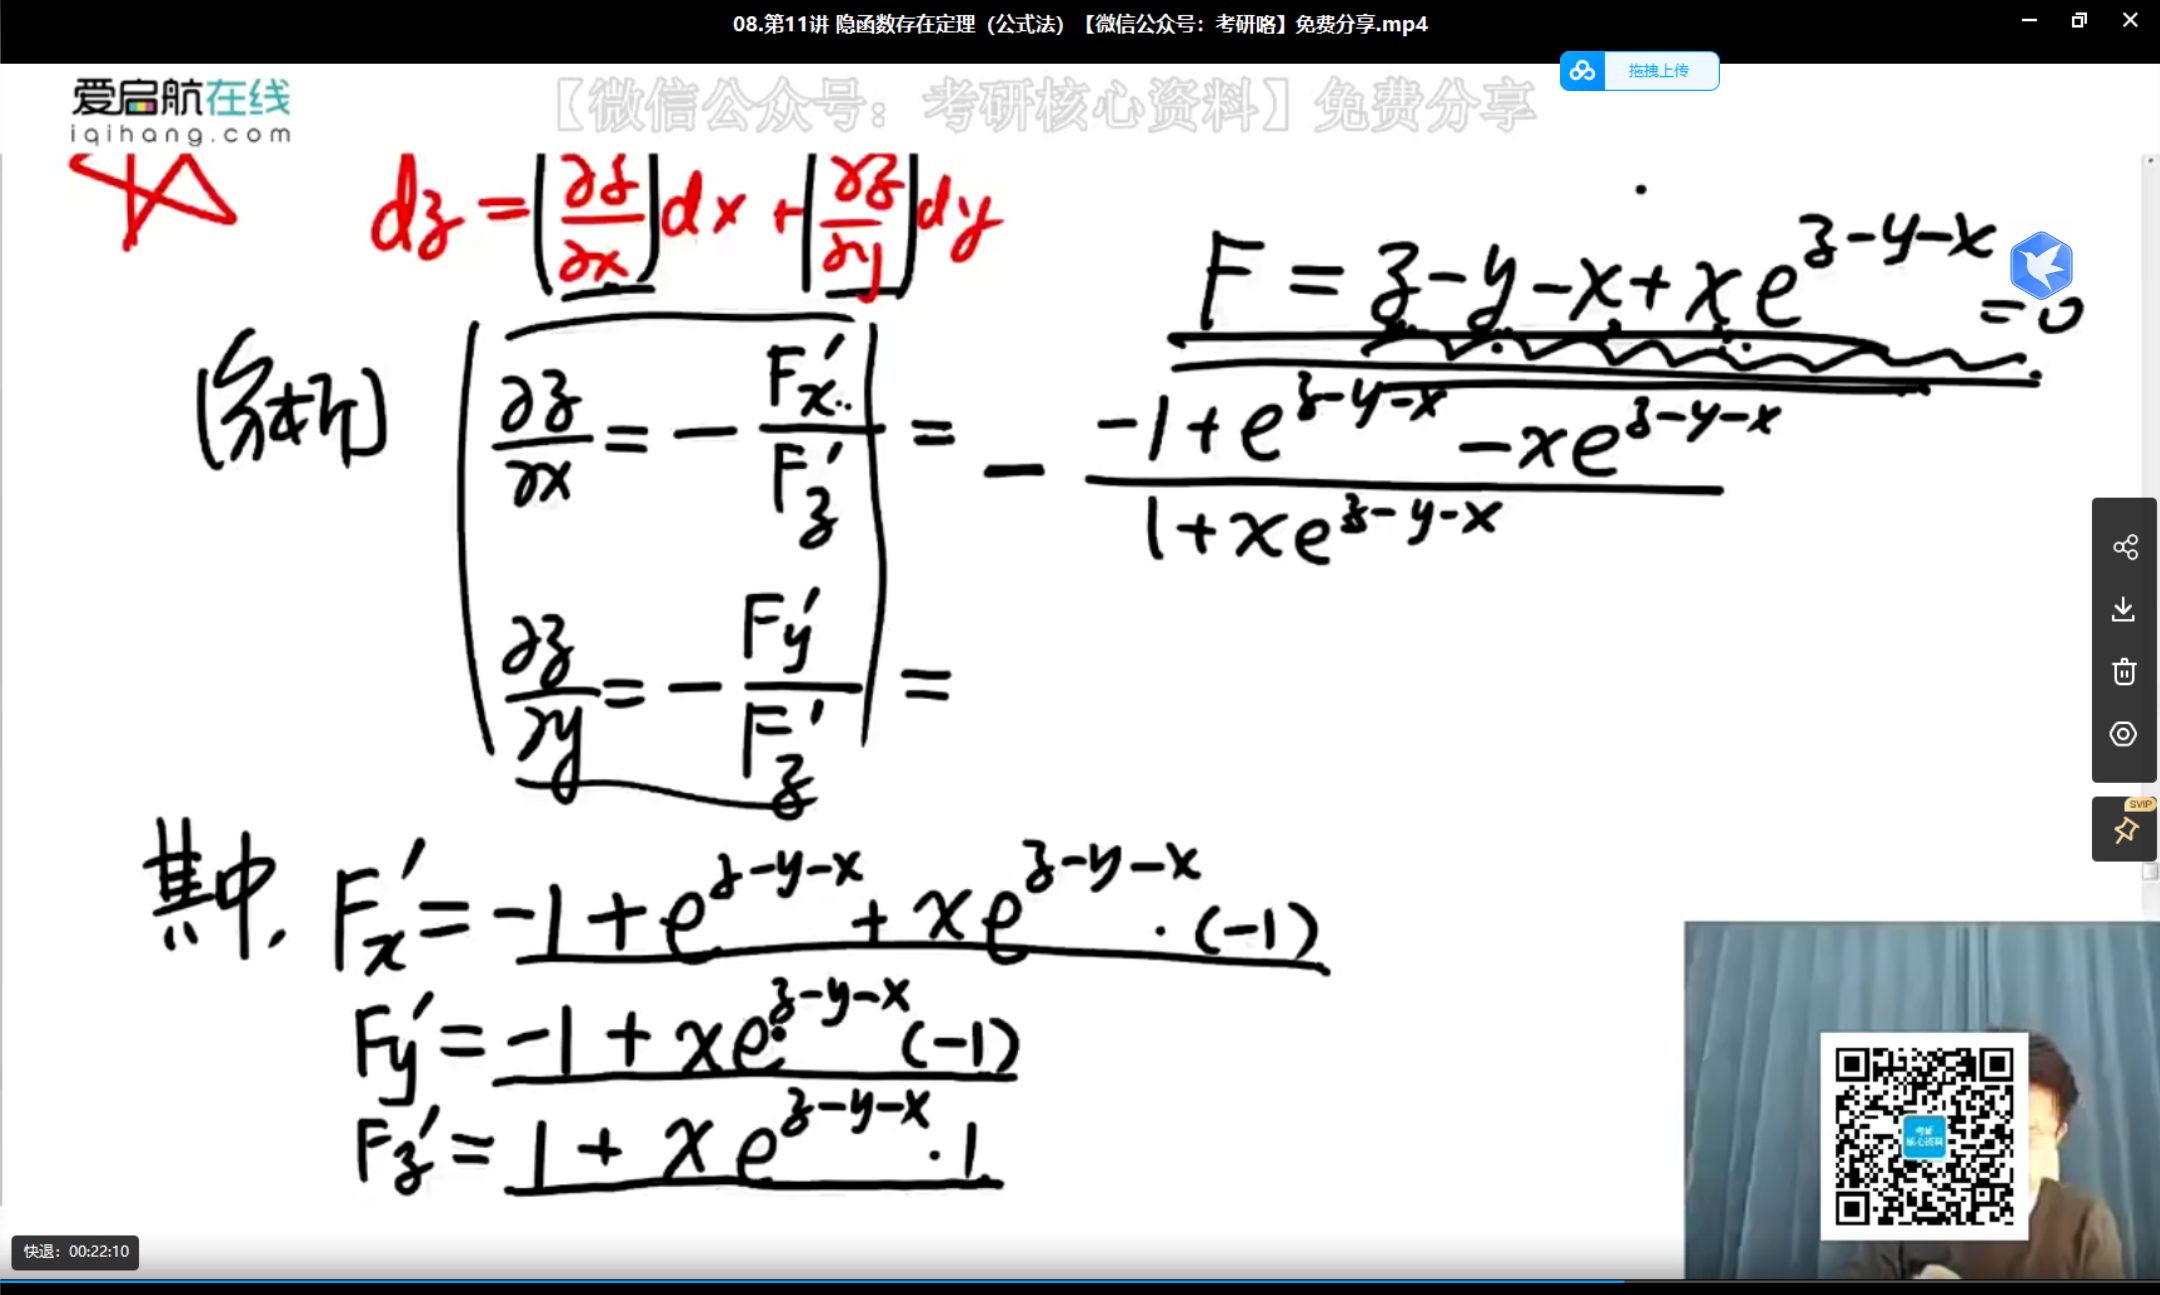 08.第11讲 隐函数存在定理（公式法）【微信公众号：考研咯】免费分享.mp4
拖拽上传
爱启航在线
iqihang.com
【微信公众号：考研核心资料】免费分享
dz = (∂z/∂x) dx + (∂z/∂y) dy
F = z-y-x+xe^{z-y-x} = 0
[分析]
∂z/∂x = - F'x/F'z = - (-1+e^{z-y-x} - xe^{z-y-x})/(1+xe^{z-y-x})
∂z/∂y = - F'y/F'z =
其中, F'x = -1 + e^{z-y-x} + xe^{z-y-x} · (-1)
F'y = -1 + xe^{z-y-x} (-1)
F'z = 1 + xe^{z-y-x} · 1
SVIP
考研
核心资料
快退：00:22:10